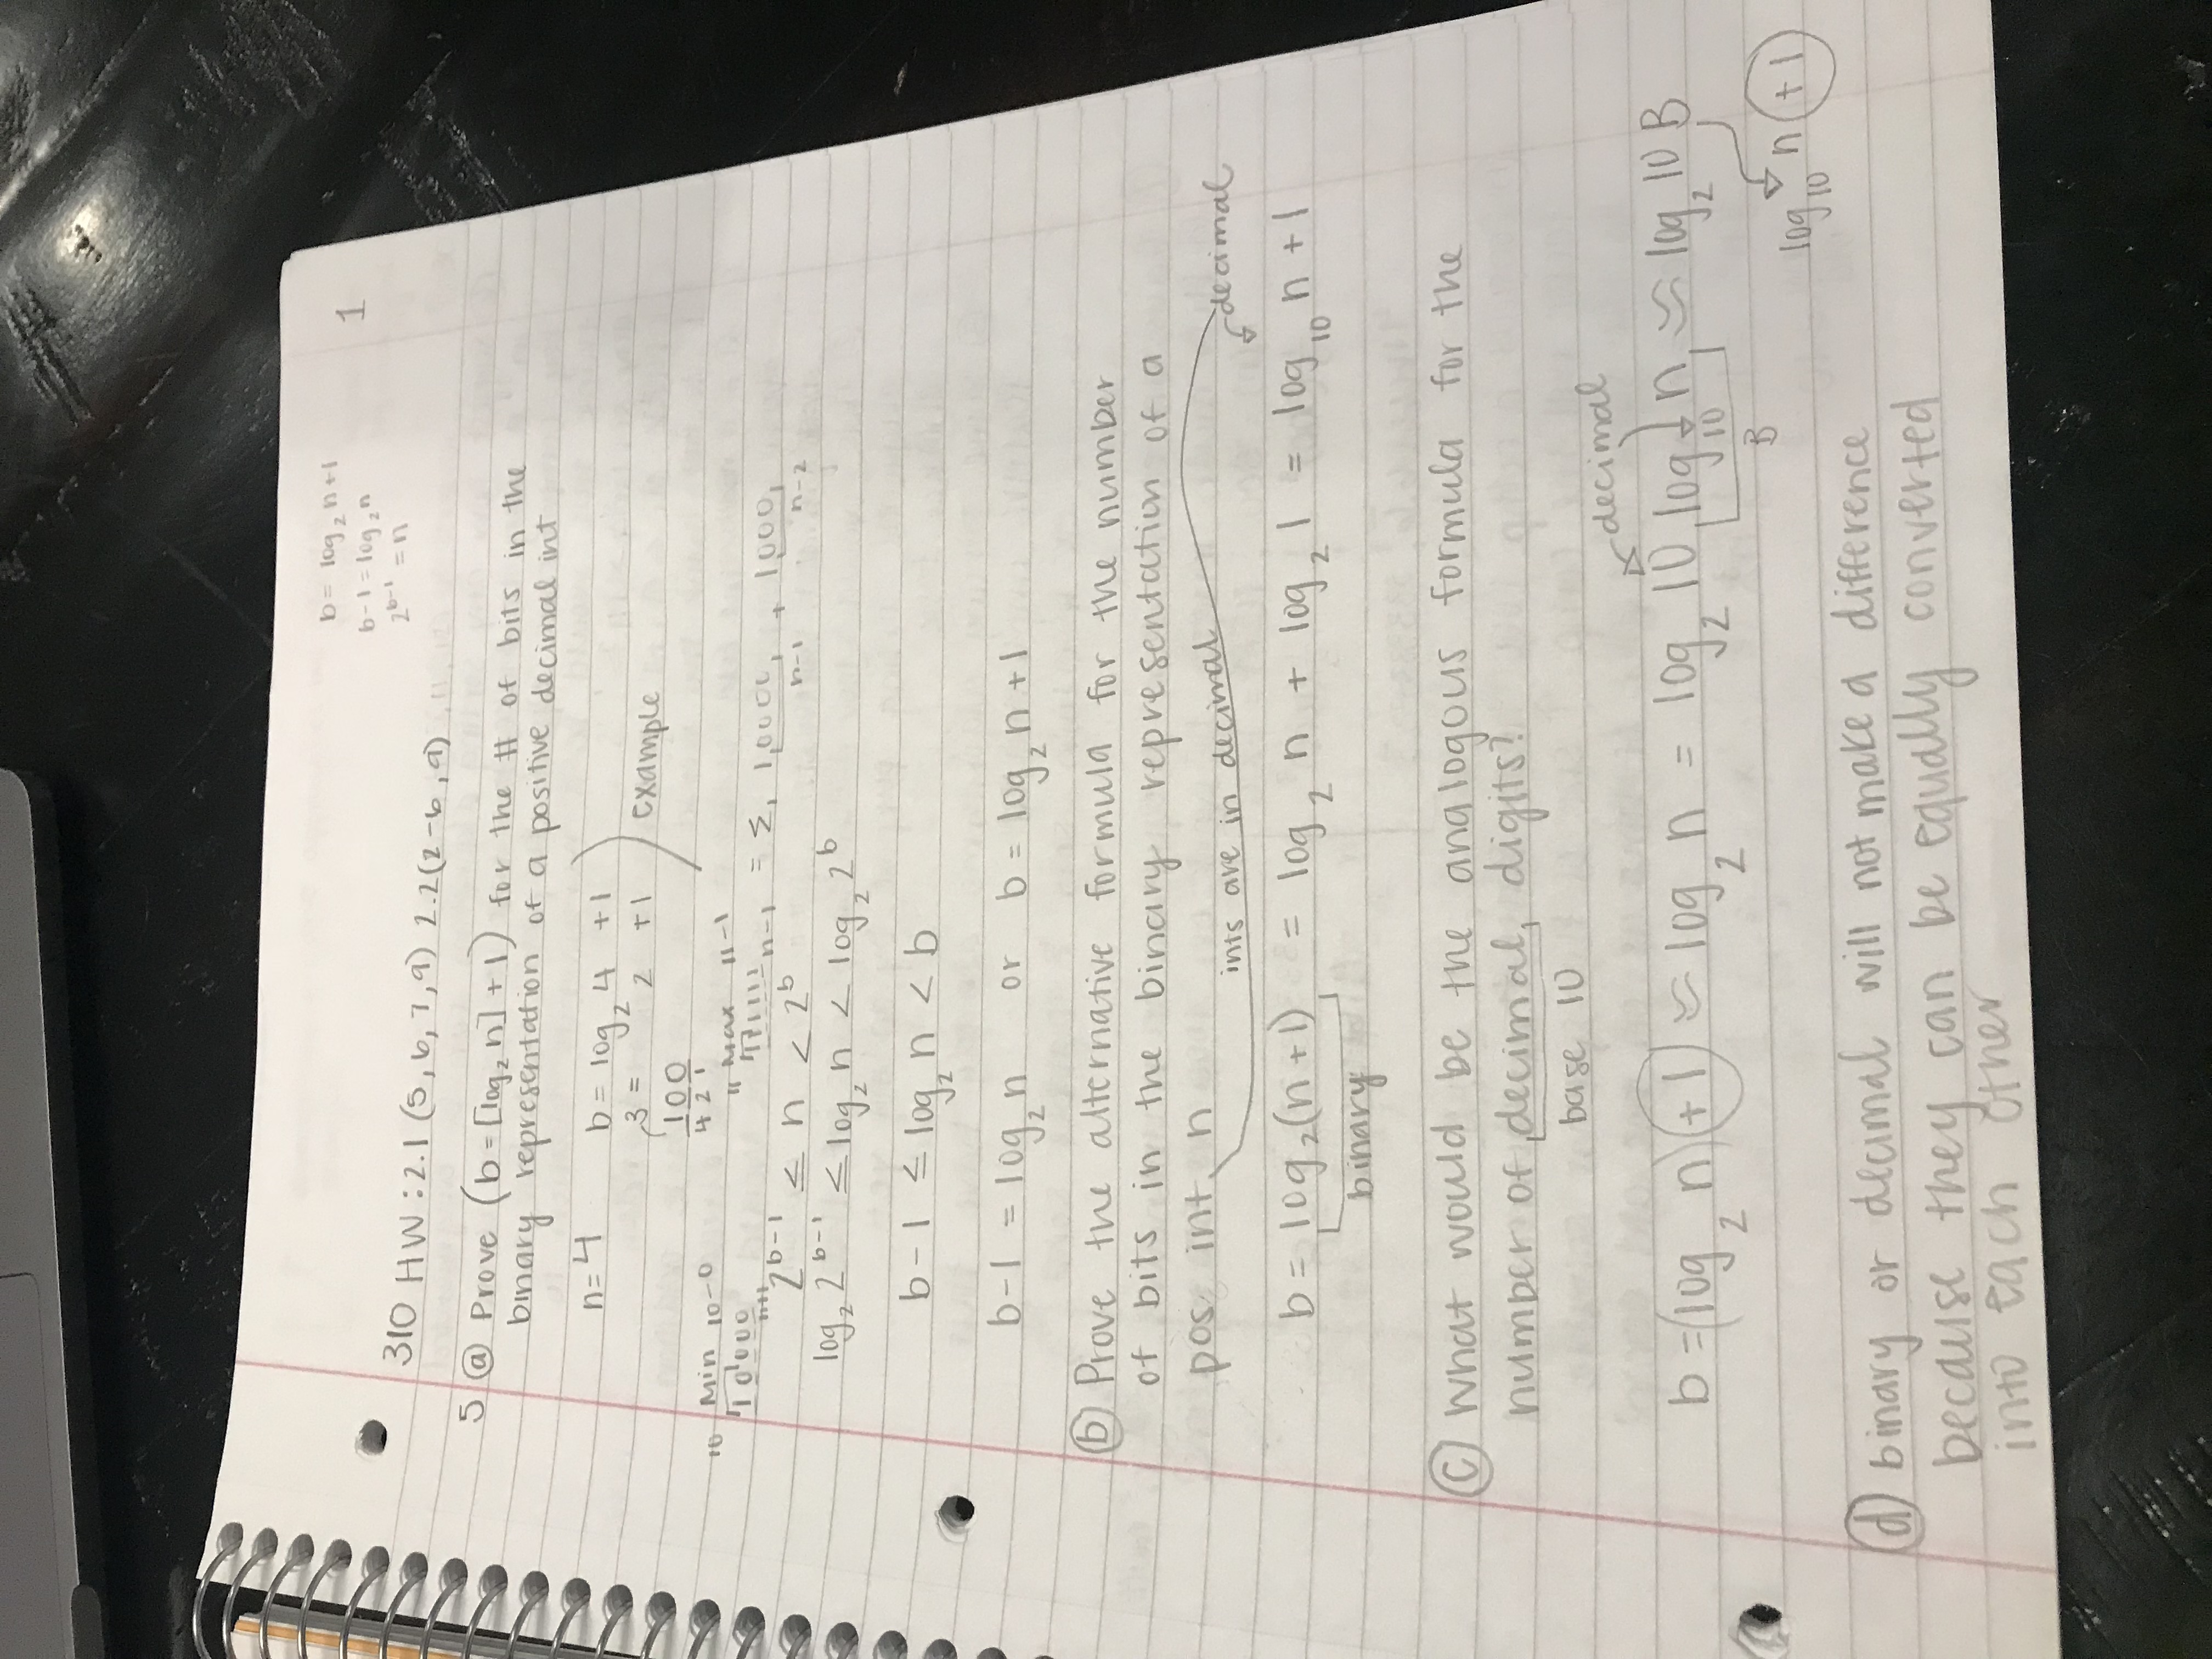 b = log₂ n+1
b-1 = log₂ n
2^(b-1) = n
1
310 HW: 2.1 (5, 6, 7, 9) 2.2 (2-6, 9)
5 (a) Prove (b = [log₂ n] + 1) for the # of bits in the
binary representation of a positive decimal int
n=4 b = log₂ 4 +1
3 = 2 +1 example
100
4 2 1
10 Min 10-0
" Max 11-1
10000
n-1 = Σ, 1,0000, + 1,000,
n-1 n-2
2^(b-1) ≤ n < 2^b
log₂ 2^(b-1) ≤ log₂ n < log₂ 2^b
b-1 ≤ log₂ n < b
b-1 = log₂ n or b = log₂ n +1
(b) Prove the alternative formula for the number
of bits in the binary representation of a
pos. int n
ints are in decimal
decimal
b = log₂(n+1) = log₂ n + log₂ 1 = log₁₀ n + 1
binary
(c) What would be the analogous formula for the
number of decimal, digits?
base 10
decimal
b = (log₂ n) +1 ≈ log₂ n = log₂ 10 log₁₀ n ≈ log₂ 10 B
B
log₁₀ n +1
(d) binary or decimal will not make a difference
because they can be equally converted
into each other